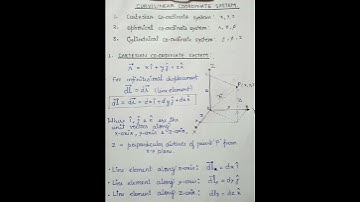 CURVILINEAR COORDINATE SYSTEM.
1. Cartesian co-ordinate system : x, y, z
2. Spherical co-ordinate system : r, θ, φ
3. Cylindrical co-ordinate system : ρ, φ, z
1. CARTESIAN CO-ORDINATE SYSTEM:
r⃗ = x î + y ĵ + z k̂
For infinitesimal displacement
dl⃗ = dr⃗ (line element)
dl⃗ = dx î + dy ĵ + dz k̂
Where î, ĵ & k̂ are the
unit vectors along
x-axis, y-axis & z-axis.
z = perpendicular distance of point 'P' from
xy plane.
• Line element along x-axis: dlₓ = dx î
• Line element along y-axis: dlᵧ = dy ĵ
• Line element along z-axis: dl_z = dz k̂
Z
P(x, y, z)